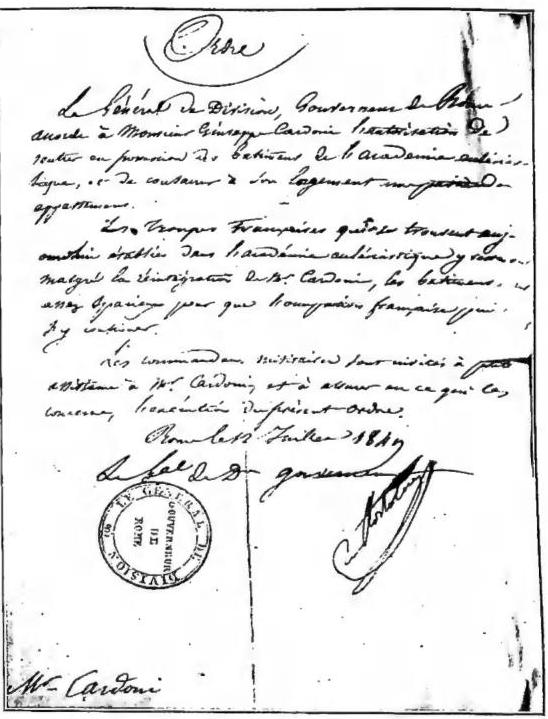 Ordre
Le Général de Division, Gouverneur de Rome
accorde à Monsieur Giuseppe Cardoni l'autorisation de
rentrer en possession des bâtimens de l'académie
et de consacrer à son logement une partie des
appartemens.
Les troupes Françaises qui se trouvent auj-
ourd'hui établies dans l'académie y
malgré la réintégration de Mr. Cardoni, les bâtimens
assez spacieux pour que l'occupation française puisse
s'y continuer.
Les commandans militaires sont invités à prêter
assistance à Mr. Cardoni, et à assurer en ce qui les
concerne, l'exécution du présent ordre.
Rome le 12 Juillet 1849
Le Gal. de Don gouverneur
LE GENERAL DE DIVISION
GOUVERNEUR
DE
ROME
Mr. Cardoni